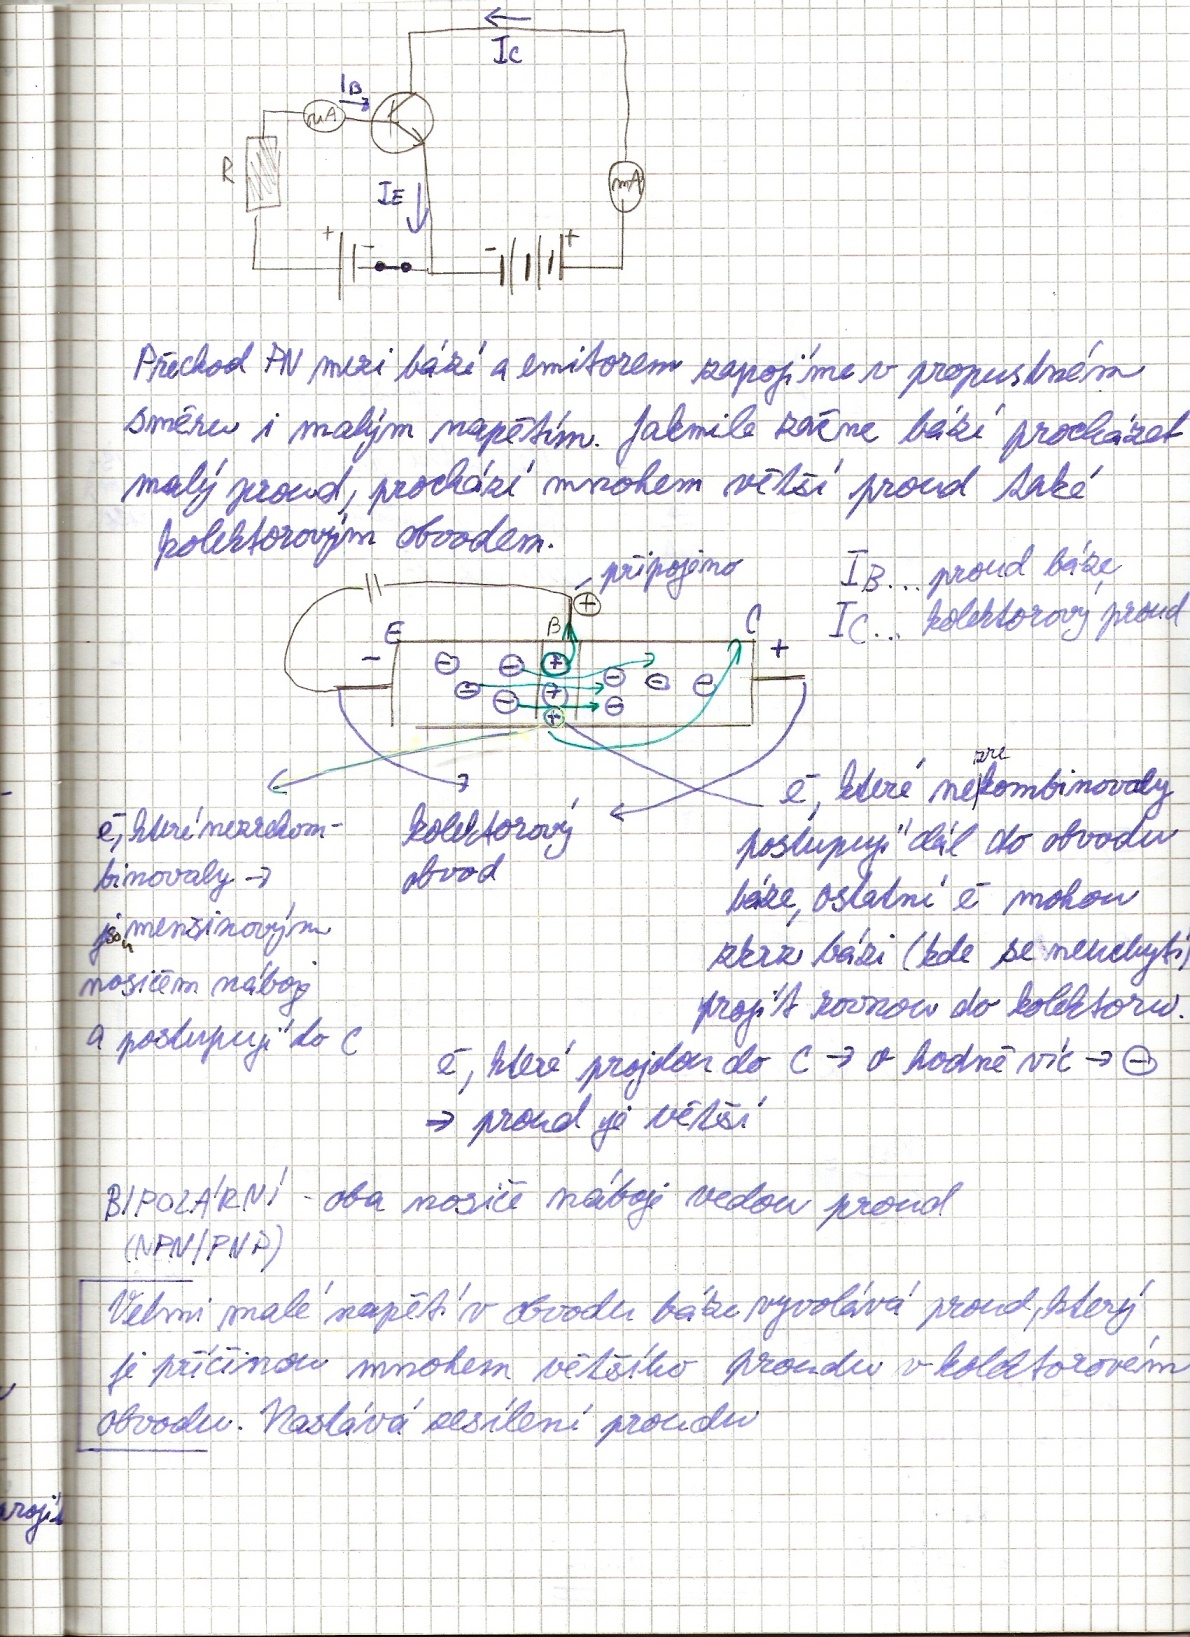 IC
IB
mA
R
IE
mA
+ - - +
Přechod PN mezi bází a emitorem zapojíme v propustném
směru i malým napětím. Jakmile začne bází procházet
malý proud, prochází mnohem větší proud také
kolektorovým obvodem.
připojeno
IB... proud báze
IC... kolektorový proud
+
E B C
- +
e⁻, které nezrekom-
binovaly →
jsou menšinovým
nosičem náboje
a postupují do C
kolektorový
obvod
e⁻, které zrekombinovaly
postupují dál do obvodu
báze, ostatní e⁻ mohou
skrz bázi (kde se neuchytí)
projít rovnou do kolektoru.
e⁻, které projdou do C → o hodně víc → ⊖
→ proud je větší
BIPOLÁRNÍ - oba nosiče náboje vedou proud
(NPN/PNP)
Velmi malé napětí v obvodu báze vyvolává proud, který
je příčinou mnohem většího proudu v kolektorovém
obvodu. Nastává zesílení proudu